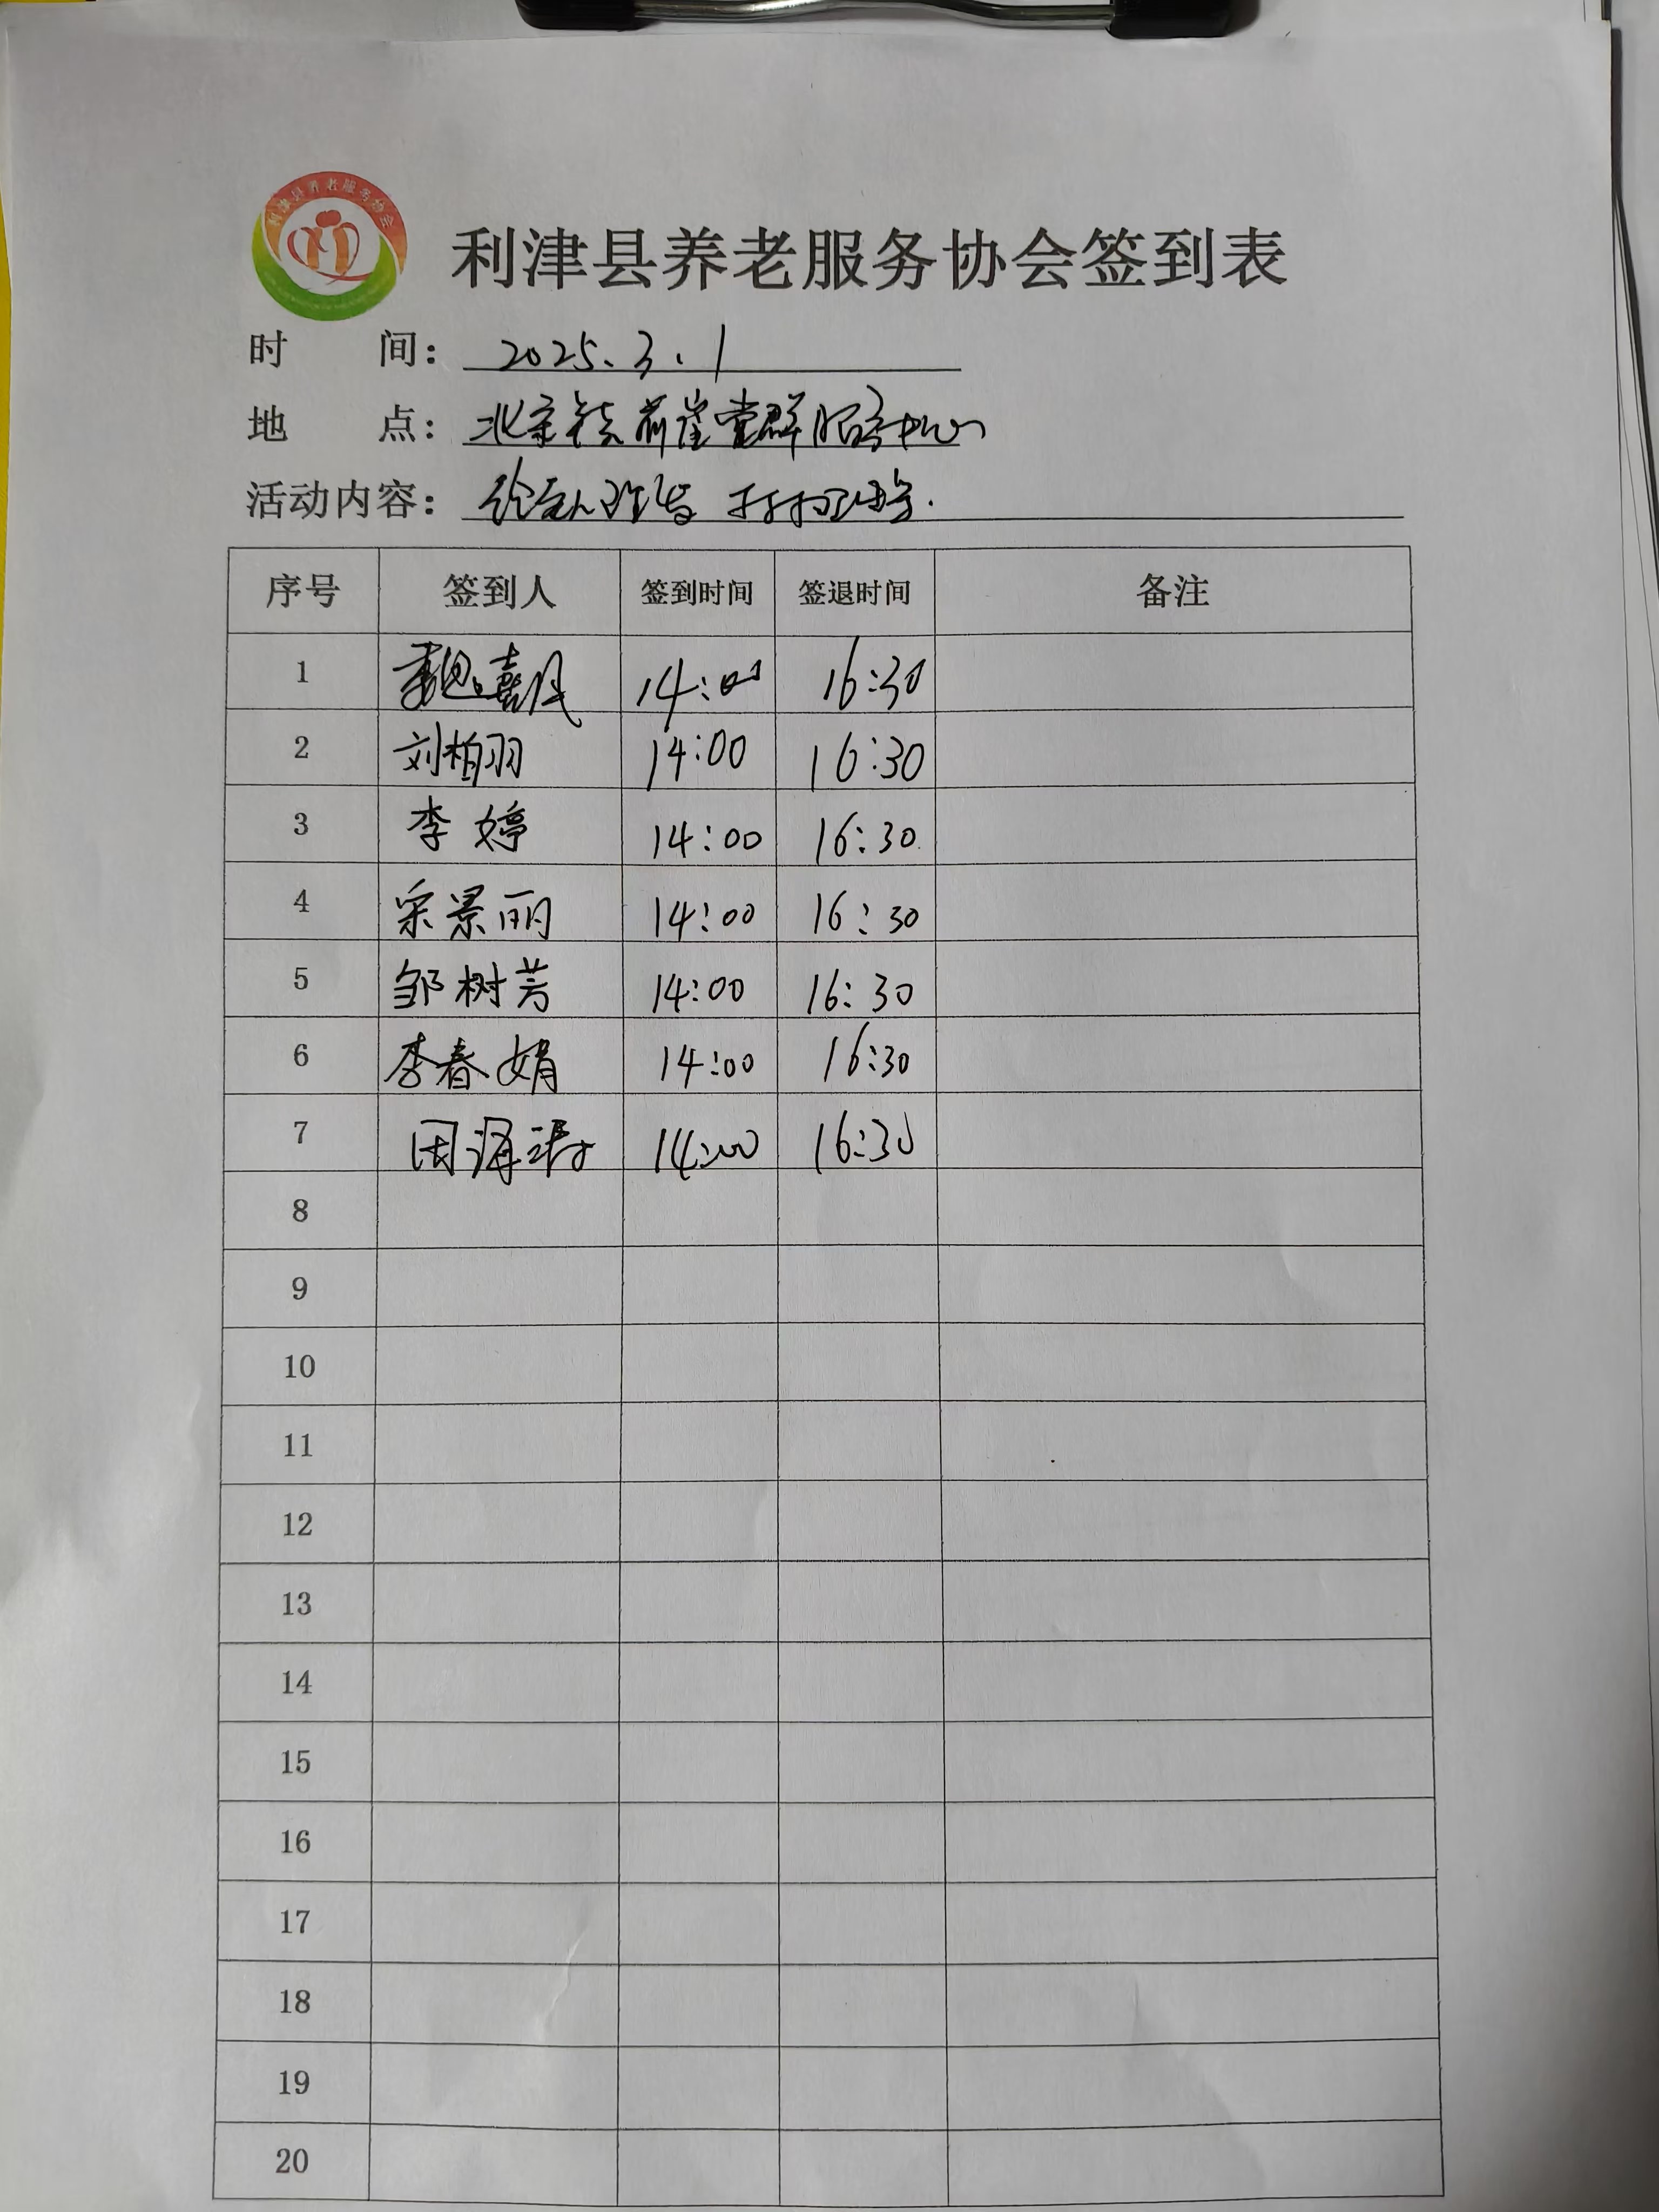 利津县养老服务协会
利津县养老服务协会签到表
时 间： 2025.3.1
地 点： 北宋镇前崔党群服务中心
活动内容： 给老人理发 打扫卫生.
序号 签到人 签到时间 签退时间 备注
1 魏喜民 14:00 16:30
2 刘柏羽 14:00 16:30
3 李婷 14:00 16:30
4 宋景丽 14:00 16:30
5 邹树芳 14:00 16:30
6 李春娟 14:00 16:30
7 14:00 16:30
8
9
10
11
12
13
14
15
16
17
18
19
20